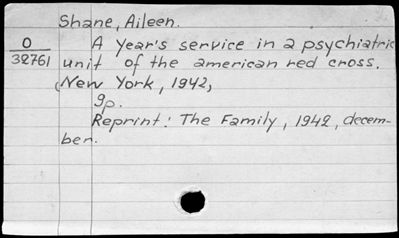 Shane, Aileen.
O
38761
A year's service in a psychiatric
unit of the american red cross.
(New York, 1942,
9p.
Reprint: The Family, 1942, decem-
ber.